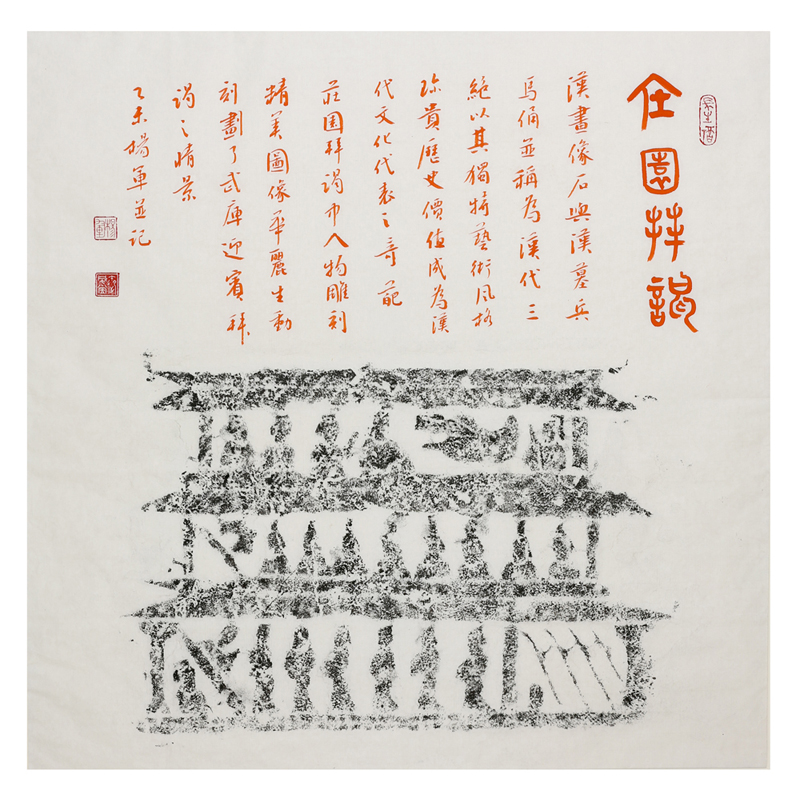 庄園拜謁
漢畫像石與漢墓兵
馬俑並稱為漢代三
絕以其獨特藝術風格
珍貴歷史價值成為漢
代文化代表之奇葩
莊園拜謁中人物雕刻
精美圖像華麗生動
刻劃了武庫迎賓拜
謁之情景
乙未楊軍並記